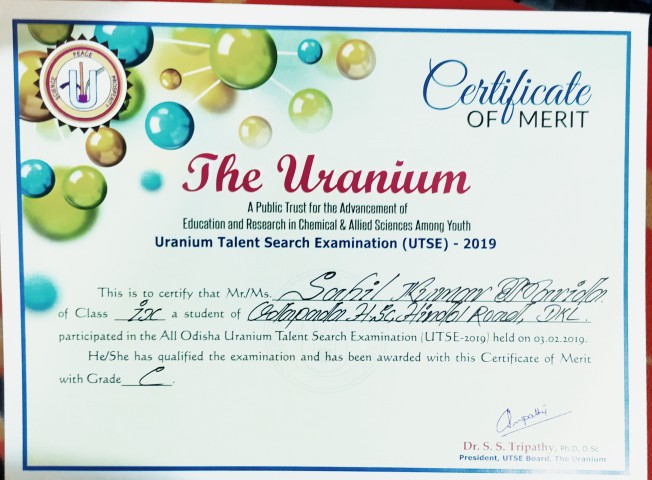 PEACE
SCIENCE
PROSPERITY
U
Certificate
OF MERIT
The Uranium
A Public Trust for the Advancement of
Education and Research in Chemical & Allied Sciences Among Youth
Uranium Talent Search Examination (UTSE) - 2019
This is to certify that Mr./Ms. Sahil Kumar
of Class ix a student of Odapada H.Sc, Hindol Road, DKL.
participated in the All Odisha Uranium Talent Search Examination (UTSE-2019) held on 03.02.2019.
He/She has qualified the examination and has been awarded with this Certificate of Merit
with Grade C.
Tripathy
Dr. S. S. Tripathy, Ph.D, D.Sc
President, UTSE Board, The Uranium